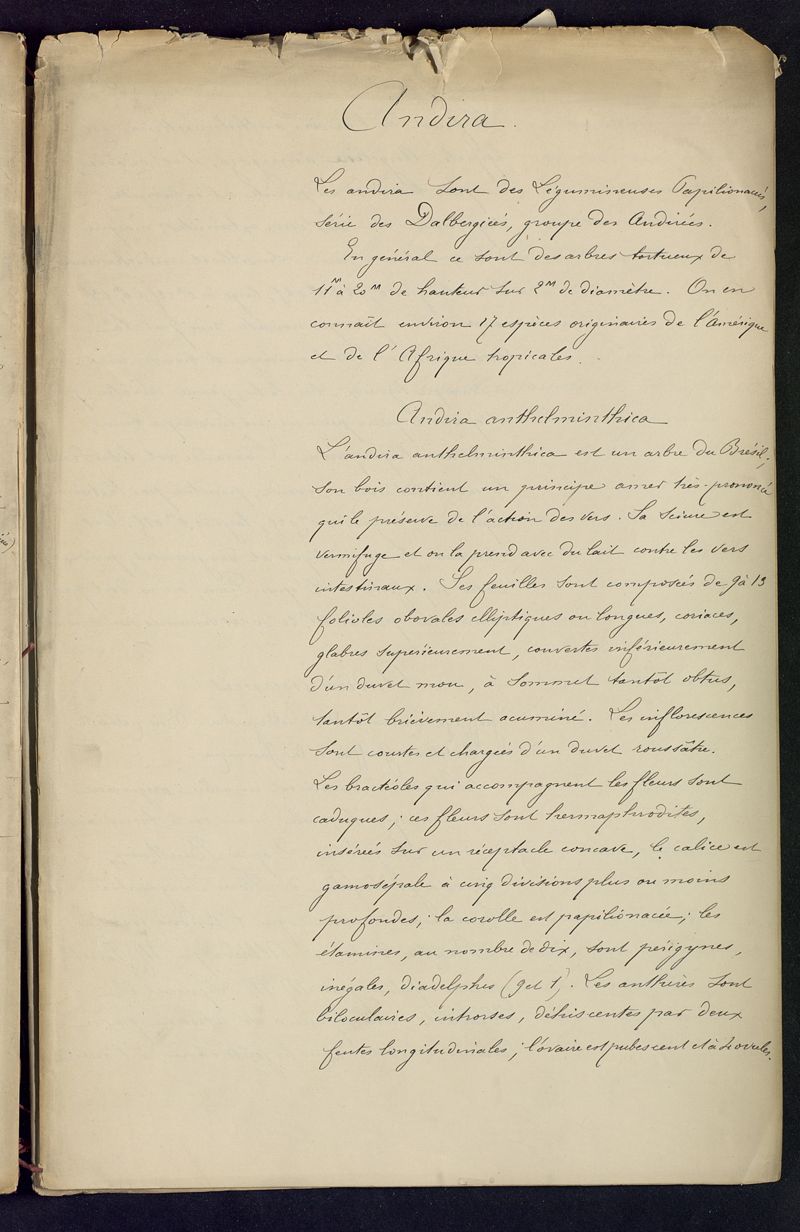 Andira.
Les andira sont des Légumineuses Papilionacés,
série des Dalbergiées, groupe des Andirées.
En général ce sont des arbres tortueux de
11m à 20m de hauteur sur 2m de diamètre. On en
connaît environ 17 espèces originaires de l'Amérique
et de l'Afrique tropicales.
Andira anthelminthica
L'andira anthelminthica est un arbre du Brésil;
son bois contient un principe amer très-prononcé
qui le préserve de l'action des vers. Sa sciure est
vermifuge et on la prend avec du lait contre les vers
intestinaux. Ses feuilles sont composées de 9 à 13
folioles obovales elliptiques ou longues, coriaces,
glabres supérieurement, couvertes inférieurement
d'un duvet mou, à sommet tantôt obtus,
tantôt brièvement acuminé. Les inflorescences
sont courtes et chargées d'un duvet roussâtre.
Les bractéoles qui accompagnent les fleurs sont
caduques; ces fleurs sont hermaphrodites,
insérées sur un réceptacle concave, le calice est
gamosépale à cinq divisions plus ou moins
profondes; la corolle est papilionacée; les
étamines, au nombre de dix, sont périgynes,
inégales, diadelphes (9 et 1). Les anthères sont
biloculaires, introrses, déhiscentes par deux
fentes longitudinales; l'ovaire est pubescent et à 4 ovules.